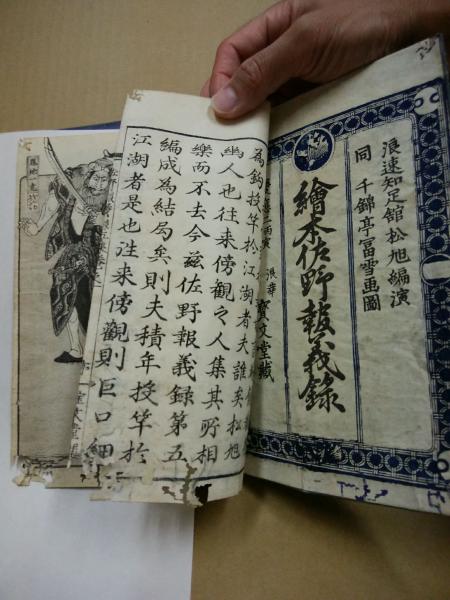 浪速知足舘松旭編演
同 千錦亭冨雪画圖
繪本佐野報義録
寳文堂藏
為鈎投竿於江湖者夫誰矣松旭
幽人也往来傍觀之人集其所相
樂而不去今茲佐野報義録第五
編成為結局矣則夫積年投竿於
江湖者是也往来傍觀則巨口細